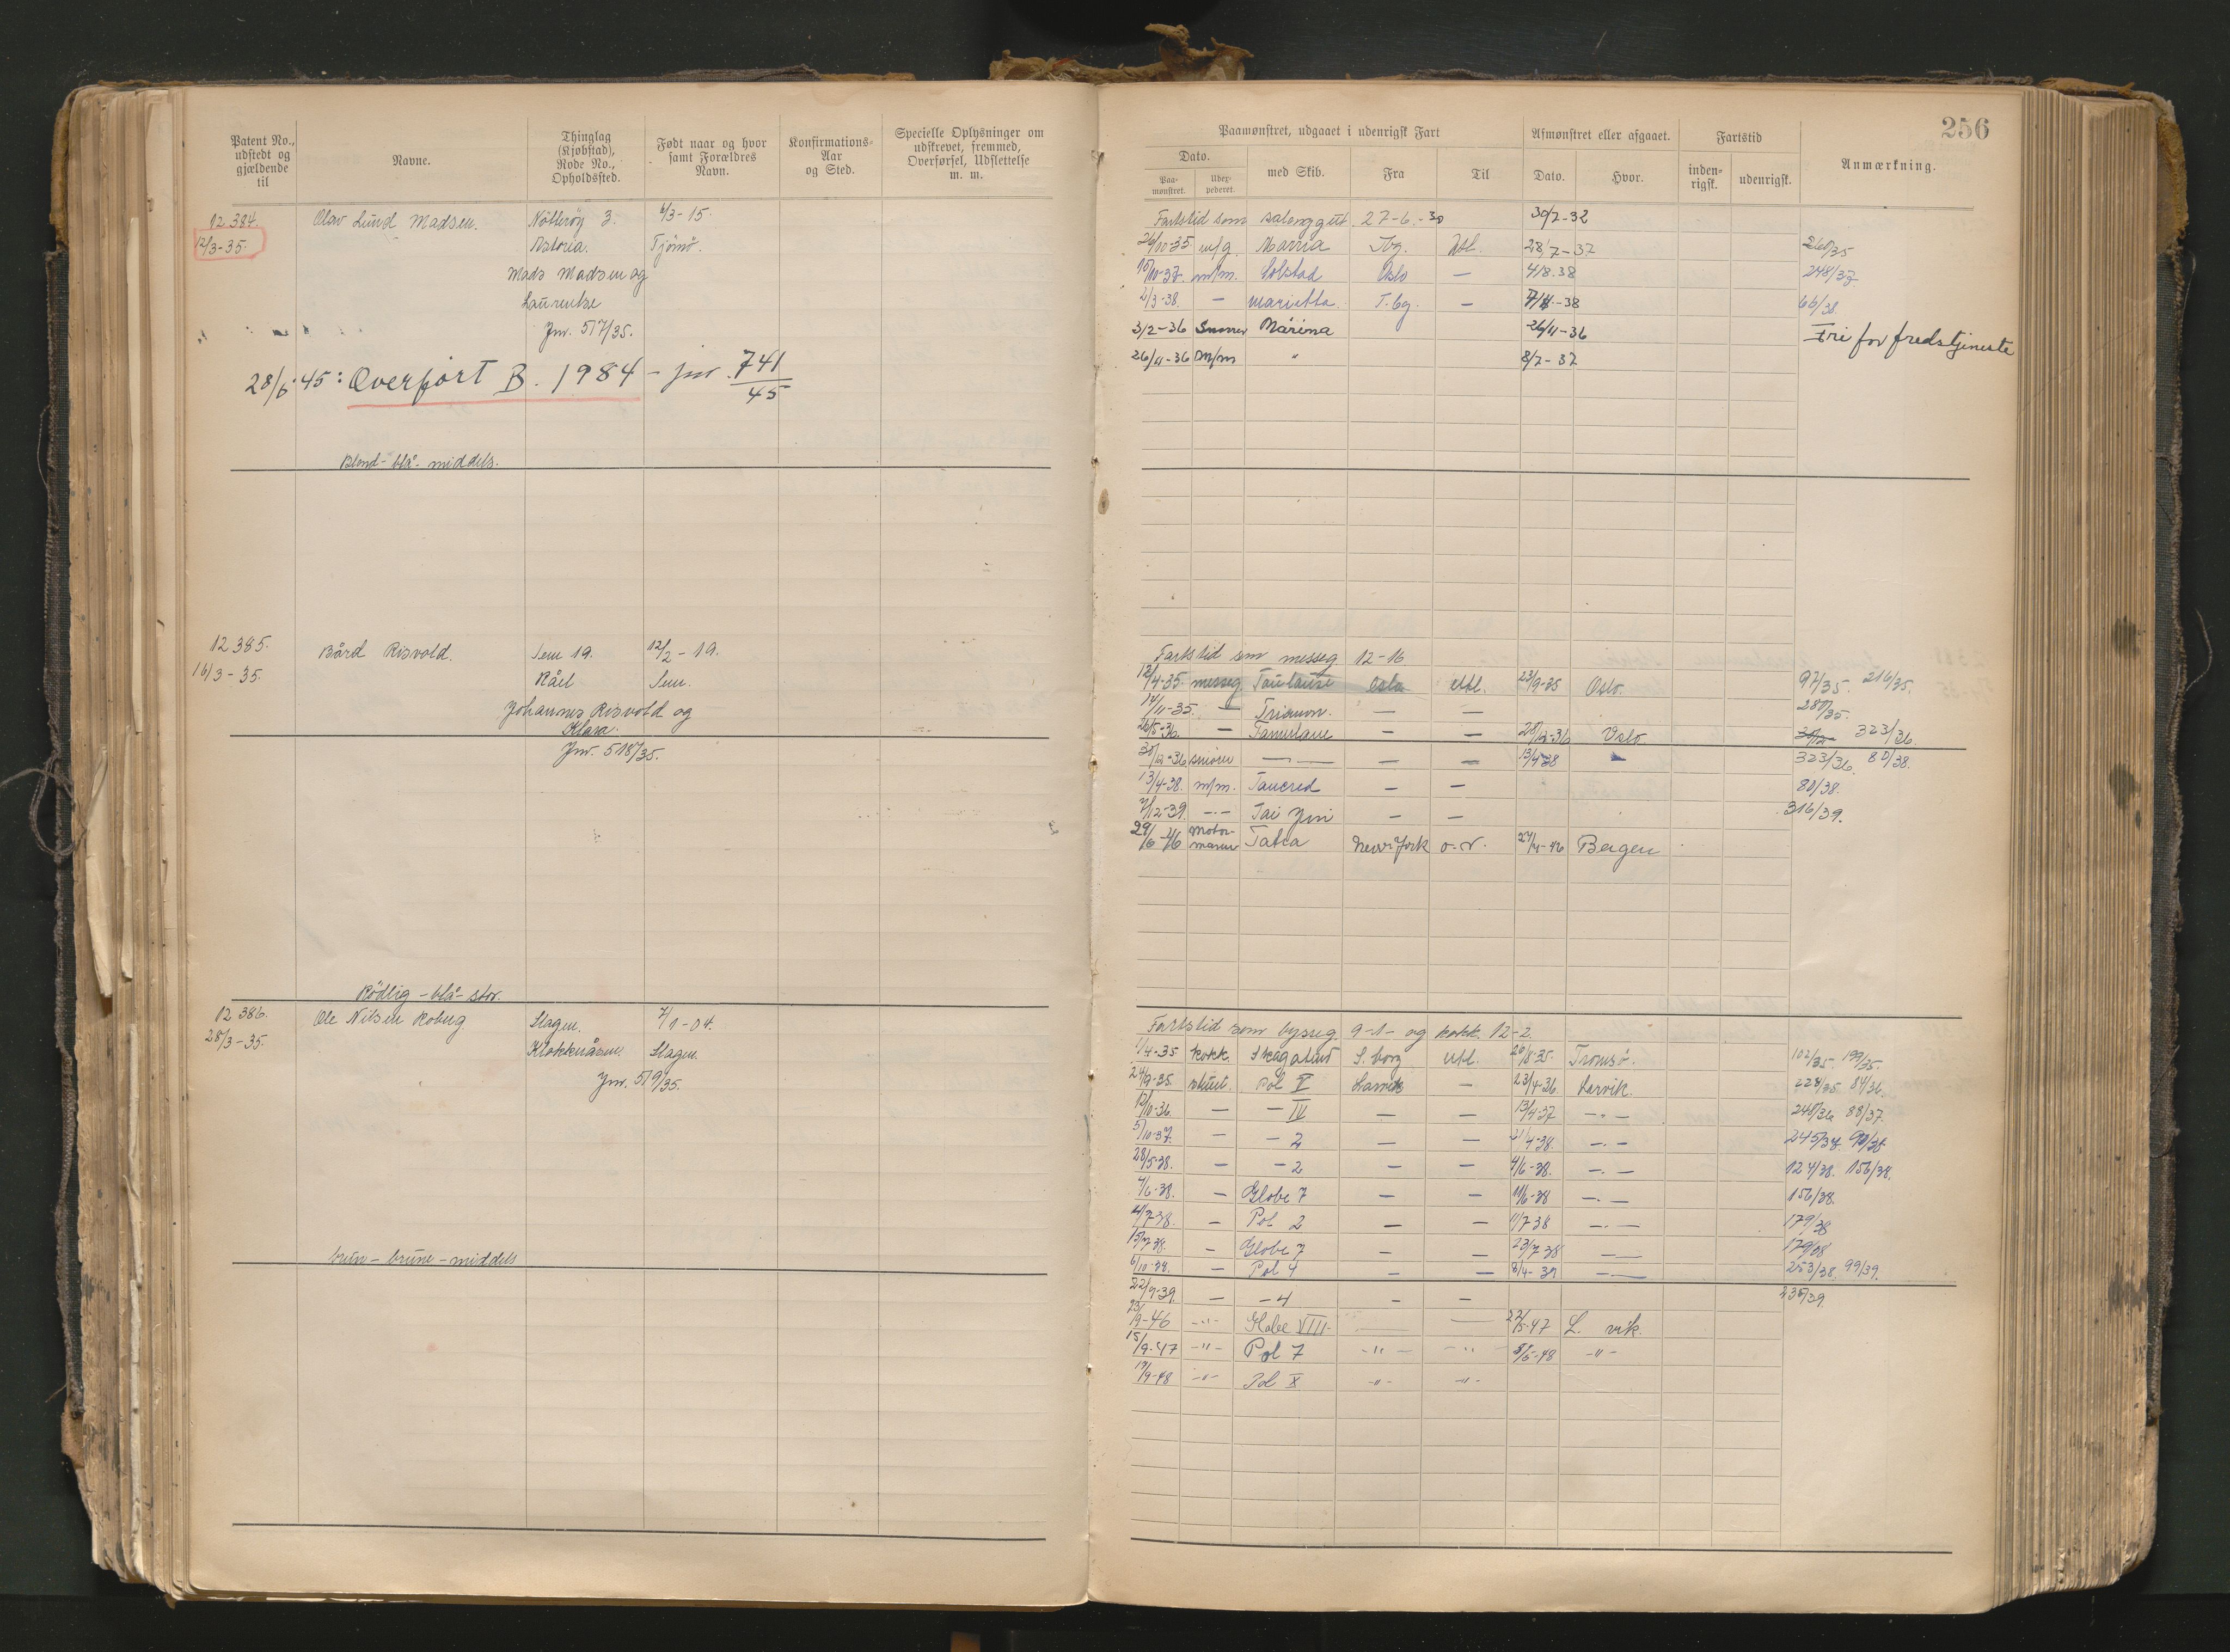 256
Patent No., udstedt og gjældende til
Navne.
Thinglag (Kjøbstad), Rode No., Opholdssted.
Født naar og hvor samt Forældres Navn.
Konfirmations-Aar og Sted.
Specielle Oplysninger om udskrevet, fremmed, Overførsel, Udslettelse m. m.
12 384. Olav Lund Madsen. Nøtterøy 3. 6/3-15.
12/3-35. Astoria. Tjømø.
Mads Madsen og
Laurentse
Jnr. 517/35.
28/6-45: Overført B. 1984 - jnr. 741/45
Blond - blå - middels.
12 385. Bård Risvold. Sem 19. 12/2-19.
16/3-35. Råel Sem.
Johannes Risvold og
Klara.
Jnr. 518/35.
Rødlig - blå - stor.
12 386. Ole Nilsen Roberg. Slagen. 7/1-04.
28/3-35. Klokkeråsen. Slagen.
Jnr. 519/35.
brun - brune - middels
Paamønstret, udgaaet i udenrigsk Fart
Afmønstret eller afgaaet.
Fartstid
Anmærkning.
Dato.
Paa-mønstret.
Uder-pederet.
med Skib.
Fra
Til
Dato.
Hvor.
inden-rigsk.
udenrigsk.
Fartstid som salonggut 27-6-30 30/7-32
26/10-35 Tbg. Utl. 28/7-37 260/35
15/10-37 m/m. Solstad Oslo — 4/8.38 248/37
2/3-38. — Marietta T.bg. — 66/38.
3/2-36 Smører Marina 26/11-36 Fri for fredstjeneste
26/11-36 M/m " 8/7-37
Fartstid som messeg 12-16
12/4-35. messeg. Toulouse Oslo utl. 23/9-35 Oslo. 97/35. 216/35.
14/11-35. — Trianon. — — 280/35.
26/5-36. — Tamerlane — — 28/12-36 Oslo. 323/36.
30/12-36 smører — — — 13/4-38 323/36. 80/38.
13/4-38. m/m. Tancred — — 80/38.
7/12-39. -.- Tai Yin — — 316/39.
29/6-46 Motor-mann Tatra New-York o.N. 27/11-46 Bergen
Fartstid som bysseg. 9-1- og kokk 12-2.
1/4-35 kokk. S.borg utl. 20/8-35. Tromsø. 102/35. 199/35.
24/9-35. stuert Pol V Larvik — 23/4-36. Larvik. 228/35 84/36.
12/10-36. — — IV — — 13/4-37 -.- 248/36 88/37.
5/10-37. — — 2 — — 21/4-38. -.- 245/37. 90/38
28/5-38. — — 2 — — 4/6-38. -.- 124/38. 156/38.
4/6-38. — Globe 7 — — 11/6-38 -.- 156/38.
4/7-38. — Pol 2 — — 11/7 38 -.- 179/38
15/7-38. — Globe 7 — — 23/7-38 — 179/38
6/10-38. — Pol 4 — — 8/4-39 — 253/38. 99/39.
22/9-39. — — 4 — — 238/39.
23/9-46 -"- Globe VIII — — 22/5-47 L. vik.
15/9-47 -"- Pol 7 -"- -"- 8/5-48 -"-
19/9-48 -"- Pol X -"- -"-